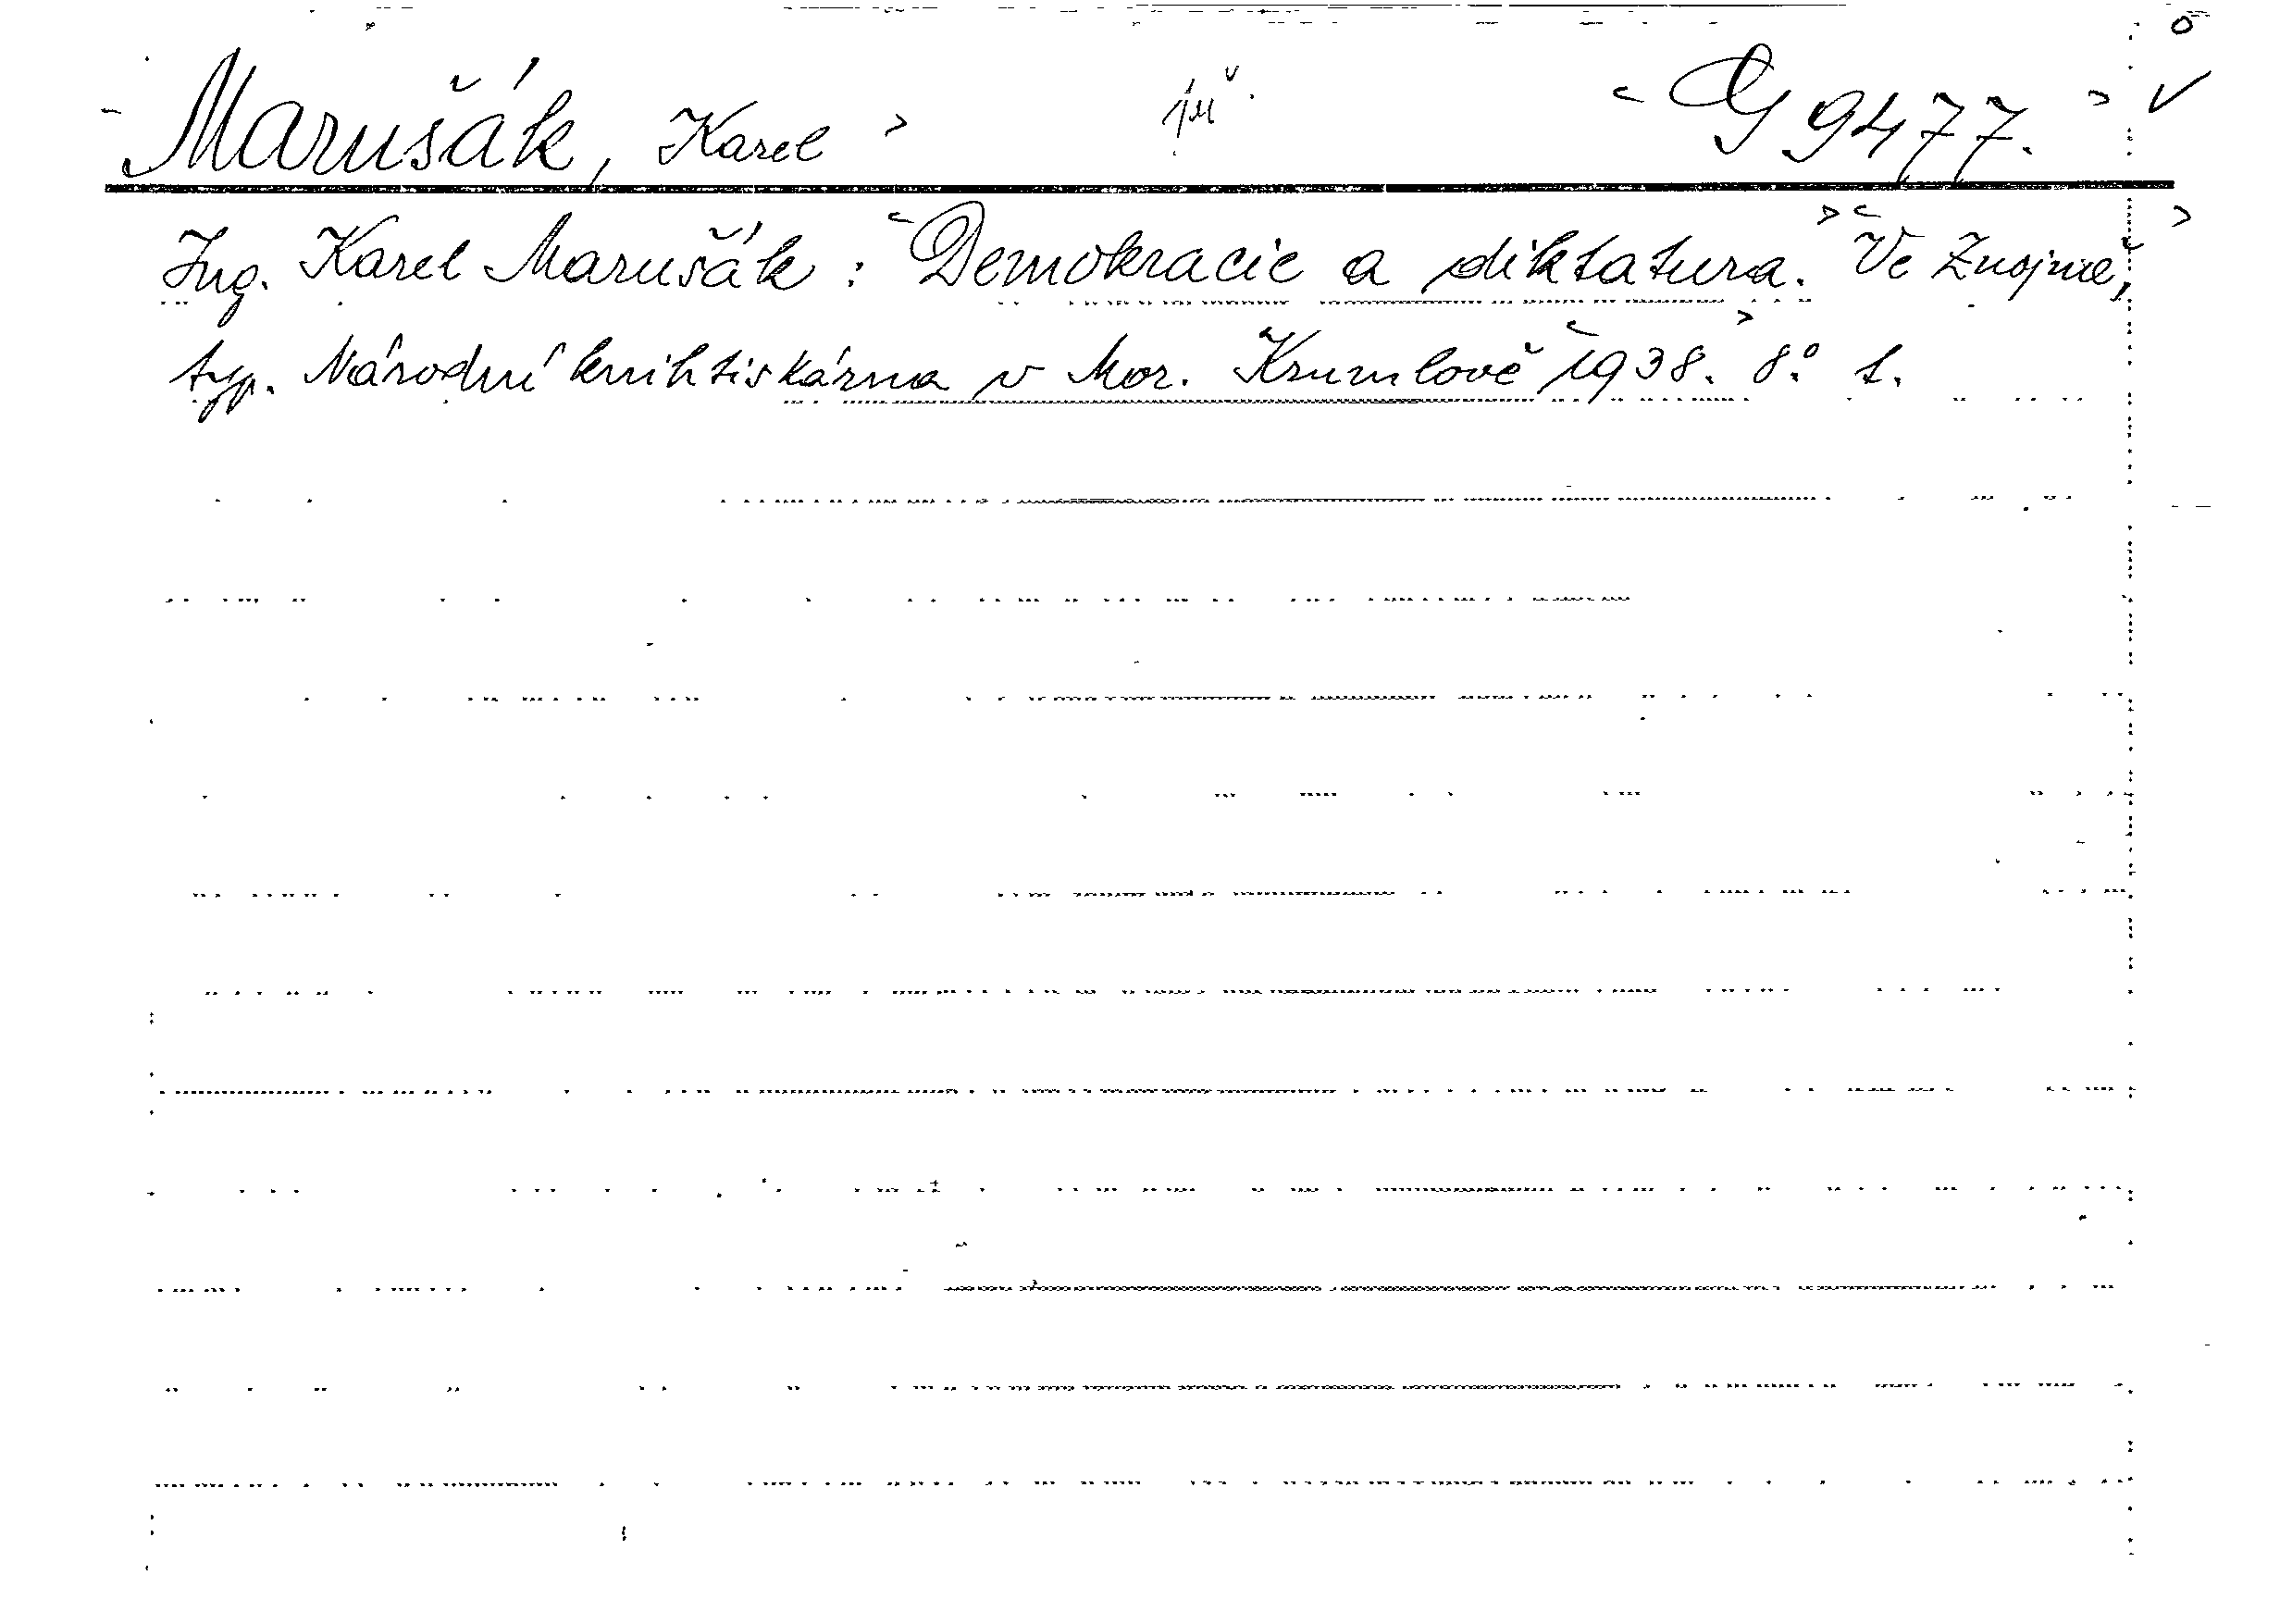 Marušák, Karel G 9477.
Ing. Karel Marušák: Demokracie a diktatura. Ve Znojmě,
typ. Národní knihtiskárna v Mor. Krumlově 1938. 8° 1.